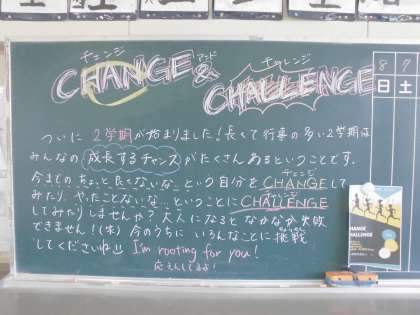 チェンジ アンド チャレンジ
CHANGE & CHALLENGE
ついに 2学期が始まりました!長くて行事の多い2学期は
みんなの 成長するチャンス がたくさんあるということです。
チェンジ
今までのちょっと良くないな… という自分をCHANGEして
チャレンジ
みたり、やったことないな… ということにCHALLENGE
してみたりしませんか?大人になるとなかなか失敗
できません!(本) 今のうちに いろんなことに挑戦
してくださいね I'm rooting for you!
応えんしてるよ!
8 7
日 土
HANGE
HALLENGE